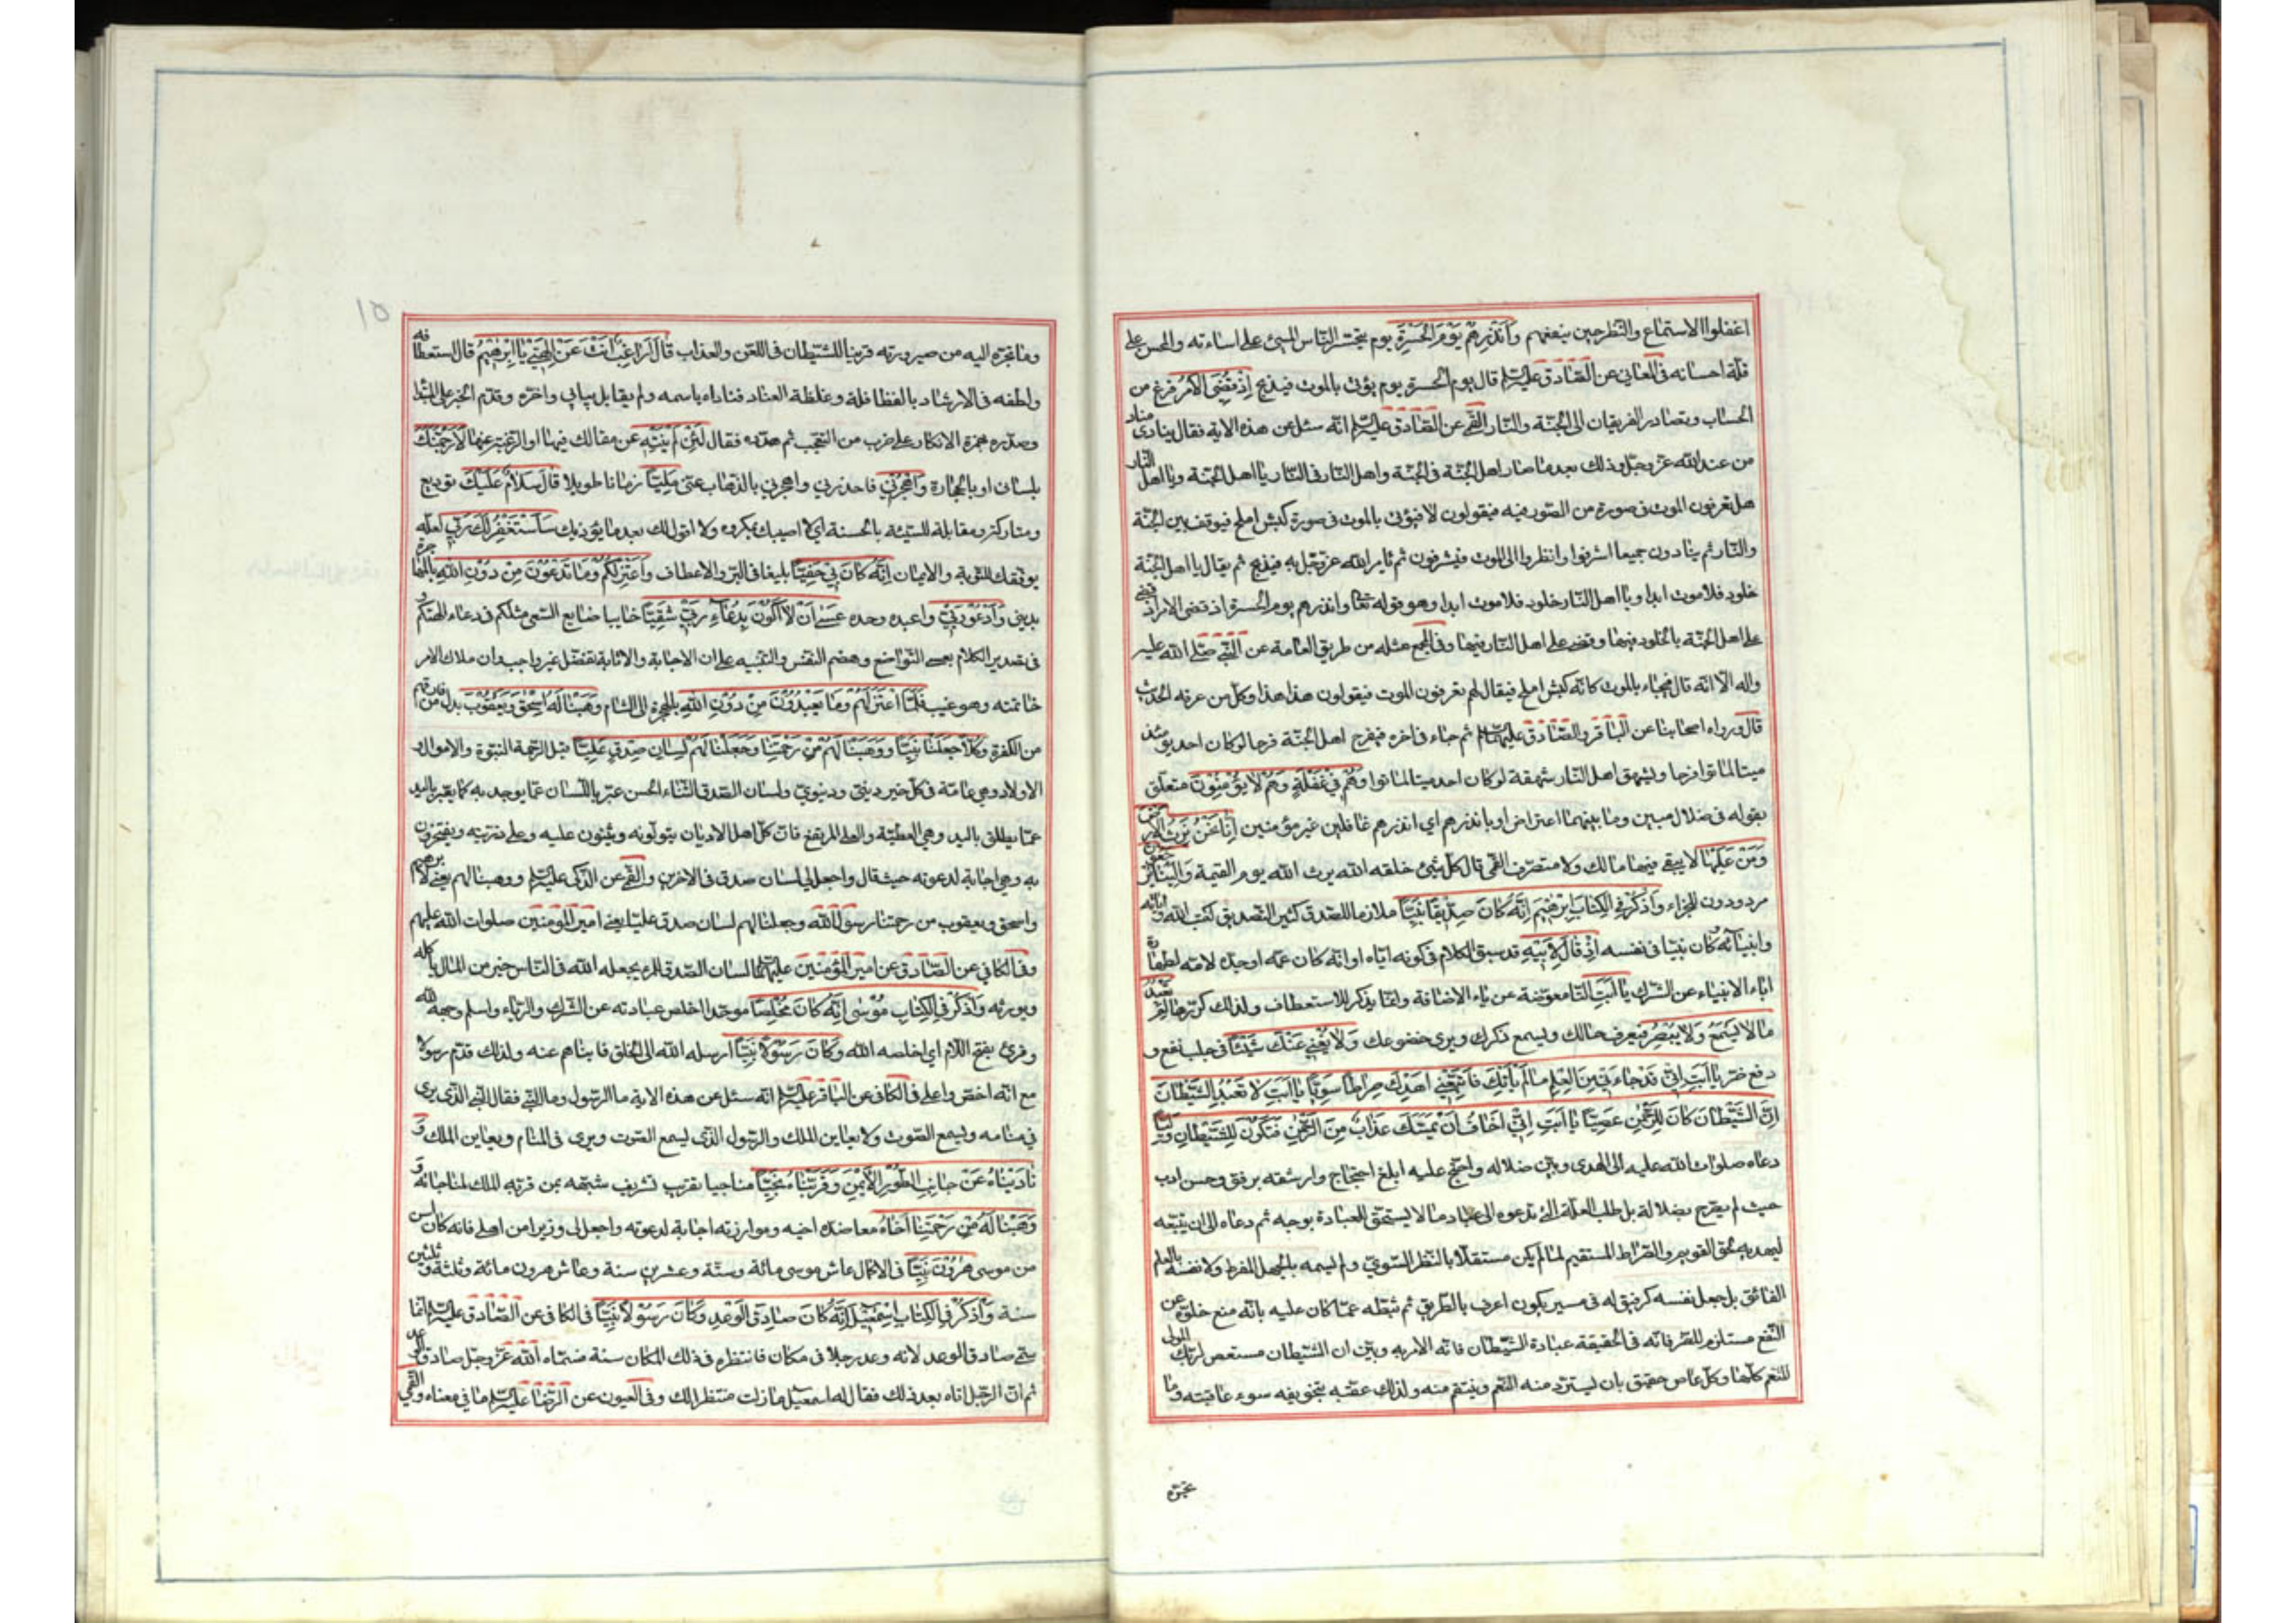 اغفلوا الاستماع والنظر حين ينفعهم وَأَنْذِرْهُمْ يَوْمَ الْحَسْرَةِ يوم يتحسر الناس المسئ على اساءته والمحسن على
قلة احسانه فى المعانى عن الصادق عليه السلم قال يوم الحسرة يوم يؤتى بالموت فيذبح إِذْ قُضِىَ الْأَمْرُ فرغ من
الحساب وتصادر الفريقان الى الجنة والنار القمى عن الصادق عليه السلم انه سئل عن هذه الاية فقال ينادى مناد
من عند الله عز وجل وذلك بعد ما صار اهل الجنة فى الجنة واهل النار فى النار يا اهل الجنة ويا اهل النار
هل تعرفون الموت فى صورة من الصور فيه فيقولون لا فيؤتى بالموت فى صورة كبش املح فيوقف بين الجنة
والنار ثم ينادون جميعا اشرفوا وانظروا الى الموت فيشرفون ثم يامر الله عز وجل به فيذبح ثم يقال يا اهل الجنة
خلود فلا موت ابدا ويا اهل النار خلود فلا موت ابدا وهو قوله تعا وانذرهم يوم الحسرة اذ قضى الامر اذ قضى
على اهل الجنة بالخلود فيها وقضى على اهل النار فيها وفى المجمع مثله من طريق العامة عن النبى صلى الله عليه
واله الا انه قال فيجاء بالموت كانه كبش املح فيقال لهم تعرفون الموت فيقولون هذا هذا وكل من عرفه الحديث
قال ورواه اصحابنا عن الباقر والصادق عليهما السلم ثم جاء فى اخره فيفرح اهل الجنة فرحا لو كان احد يومئذ
ميتا لماتوا فرحا ويشهق اهل النار شهقة لو كان احد ميتا لماتوا وَهُمْ فِى غَفْلَةٍ وَهُمْ لَا يُؤْمِنُونَ متعلق
بقوله فى ضلال مبين وما بينهما اعتراض او بانذرهم اى انذرهم غافلين غير مؤمنين إِنَّا نَحْنُ نَرِثُ الْأَرْضَ
وَمَنْ عَلَيْهَا لا يبقى فيها مالك ولا متصرف القمى قال كل شئ خلقه الله يرث الله يوم القيمة وَإِلَيْنَا يُرْجَعُونَ
مردودون للجزاء وَاذْكُرْ فِى الْكِتَابِ إِبْرَهِيمَ إِنَّهُ كَانَ صِدِّيقًا نَبِيًّا ملازما للصدق كثير التصديق لكتب الله واياته
وانبيائه كان نبيا فى نفسه إِذْ قَالَ لِأَبِيهِ قد سبق الكلام فى كونه اباه او انه كان عمه او جده لامه لطهارة
اباء الانبياء عن الشرك يَا أَبَتِ التا معوضة عن ياء الاضافة وانما يذكر للاستعطاف ولذلك كررها لِمَ تَعْبُدُ
مَا لَا يَسْمَعُ وَلَا يُبْصِرُ فيعرف حالك ويسمع ذكرك ويرى خضوعك وَلَا يُغْنِى عَنْكَ شَيْئًا فى جلب نفع و
دفع ضر يَا أَبَتِ إِنِّى قَدْ جَاءَنِى مِنَ الْعِلْمِ مَا لَمْ يَأْتِكَ فَاتَّبِعْنِى أَهْدِكَ صِرَاطًا سَوِيًّا يَا أَبَتِ لَا تَعْبُدِ الشَّيْطَانَ
إِنَّ الشَّيْطَانَ كَانَ لِلرَّحْمٰنِ عَصِيًّا يَا أَبَتِ إِنِّى أَخَافُ أَنْ يَمَسَّكَ عَذَابٌ مِنَ الرَّحْمٰنِ فَتَكُونَ لِلشَّيْطَانِ وَلِيًّا
دعاه صلوات الله عليه الى الهدى وبين ضلاله واحتج عليه ابلغ احتجاج وارشقه برفق وحسن ادب
حيث لم يصرح بضلاله بل طلب العلة التى تدعوه الى عباد ما لا يستحق للعبادة بوجه ثم دعاه الى ان يتبعه
ليهديه الحق القويم والصراط المستقيم لما لم يكن مستقلا بالنظر السوى ولم يسمه بالجهل المفرط ولا نفسه بالعلم
الفائق بل جعل نفسه كرفيق له فى مسير يكون اعرف بالطريق ثم ثبطه عما كان عليه بانه مع خلوه عن
النفع مستلزم للضر فانه فى الحقيقة عبادة الشيطان فانه الامر به وبين ان الشيطان مستعص لربك المولى
للنعم كلها وكل عاص حقيق بان يسترد منه النعم وينتقم منه ولذلك عقبه بتخويفه سوء عاقبته وما
تجره
١٥
وما تجره اليه من صيرورته قرينا للشيطان فى اللعن والعذاب قَالَ أَرَاغِبٌ أَنْتَ عَنْ اٰلِهَتِى يَا إِبْرٰهِيمُ قابل استعطافه
ولطفه فى الارشاد بالفظاظة وغلظة العناد فناداه باسمه ولم يقابل بيابنى واخره وقدم الخبر على المبتدا
وصدره بهمزة الانكار على ضرب من التعجب ثم هدده فقال لَئِنْ لَمْ تَنْتَهِ عن مقالك فيها او الرغبة عنها لَأَرْجُمَنَّكَ
بلسانى او بالحجارة وَاهْجُرْنِى فاحذرنى واهجرنى بالذهاب عنى مَلِيًّا زمانا طويلا قَالَ سَلَامٌ عَلَيْكَ توديع
ومتاركة ومقابلة للسيئة بالحسنة اى لا اصيبك بمكروه ولا اقول لك بعد ما يؤذيك سَأَسْتَغْفِرُ لَكَ رَبِّى لعله
يوفقك للتوبة والايمان إِنَّهُ كَانَ بِى حَفِيًّا بليغا فى البر والاعطاف وَأَعْتَزِلُكُمْ وَمَا تَدْعُونَ مِنْ دُونِ اللهِ بالمهاجرة
بدينى وَأَدْعُو رَبِّى واعبده وحده عَسَى أَنْ لَا أَكُونَ بِدُعَاءِ رَبِّى شَقِيًّا خايبا ضايع السعى مثلكم فى دعاء الهتكم و
فى تصدير الكلام بعسى التواضع وهضم النفس والتنبيه على ان الاجابة والاثابة تفضل غير واجب وان ملاك الامر
خاتمته وهو غيب فَلَمَّا اعْتَزَلَهُمْ وَمَا يَعْبُدُونَ مِنْ دُونِ اللهِ بالهجرة الى الشام وَهَبْنَا لَهُ إِسْحٰقَ وَيَعْقُوبَ بدل من فارقهم
من الكفرة وَكُلًّا جَعَلْنَا نَبِيًّا وَوَهَبْنَا لَهُمْ مِنْ رَحْمَتِنَا وَجَعَلْنَا لَهُمْ لِسَانَ صِدْقٍ عَلِيًّا قيل الرحمة النبوة والاموال و
الاولاد وهى عامة فى كل خير دينى ودنيوى ولسان الصدق الثناء الحسن عبر باللسان عما يوجد به كما يعبر باليد
عما يطلق باليد وهى العطية والعلى المرتفع فان كل اهل الاديان يتولونه ويثنون عليه وعلى ذريته ويفتخرون
به وهى اجابة لدعوته حيث قال واجعل لى لسان صدق فى الاخرين والقمى عن الزكى عليه السلم ووهبنا لهم يعنى لابرهيم
واسحق ويعقوب من رحمتنا رسول الله وجعلنا لهم لسان صدق عليا يعنى امير المؤمنين صلوات الله عليهم
وفى الكافى عن الصادق عن امير المؤمنين عليهما السلم لسان الصدق للمرء يجعله الله فى الناس خير من المال ياكله
ويورثه وَاذْكُرْ فِى الْكِتَابِ مُوْسٰى إِنَّهُ كَانَ مُخْلِصًا موحدا اخلص عبادته عن الشرك والرياء واسلم وجهه لله
وقرئ بفتح اللام اى اخلصه الله وَكَانَ رَسُولًا نَبِيًّا ارسله الله الى الخلق فانباهم عنه ولذلك قدم رسولا
مع انه اخص واعلى فى الكافى عن الباقر عليه السلم انه سئل عن هذه الاية ما الرسول وما النبى فقال النبى الذى يرى
فى منامه ويسمع الصوت ولا يعاين الملك والرسول الذى يسمع الصوت ويرى فى المنام ويعاين الملك وَ
نَادَيْنَاهُ مِنْ جَانِبِ الطُّورِ الْأَيْمَنِ وَقَرَّبْنَاهُ نَجِيًّا مناجيا تقريب تشريف شبهه بمن قربه الملك لمناجاته وَ
وَهَبْنَا لَهُ مِنْ رَحْمَتِنَا أَخَاهُ معاضدة اخيه وموازرته اجابة لدعوته واجعل لى وزيرا من اهلى فانه كان اسن
من موسى هٰرُوْنَ نَبِيًّا فى الاكمال عاش موسى مائة وستة وعشرين سنة وعاش هرون مائة وثلثة وثلثين
سنة وَاذْكُرْ فِى الْكِتَابِ إِسْمٰعِيلَ إِنَّهُ كَانَ صَادِقَ الْوَعْدِ وَكَانَ رَسُولًا نَبِيًّا فى الكافى عن الصادق عليه السلم انما
سمى صادق الوعد لانه وعد رجلا فى مكان فانتظره فى ذلك المكان سنة فسماه الله عز وجل صادق الوعد
ثم ان الرجل اتاه بعد ذلك فقال له اسمعيل ما زلت منتظرا لك وفى العيون عن الرضا عليه السلم ما فى معناه والقمى